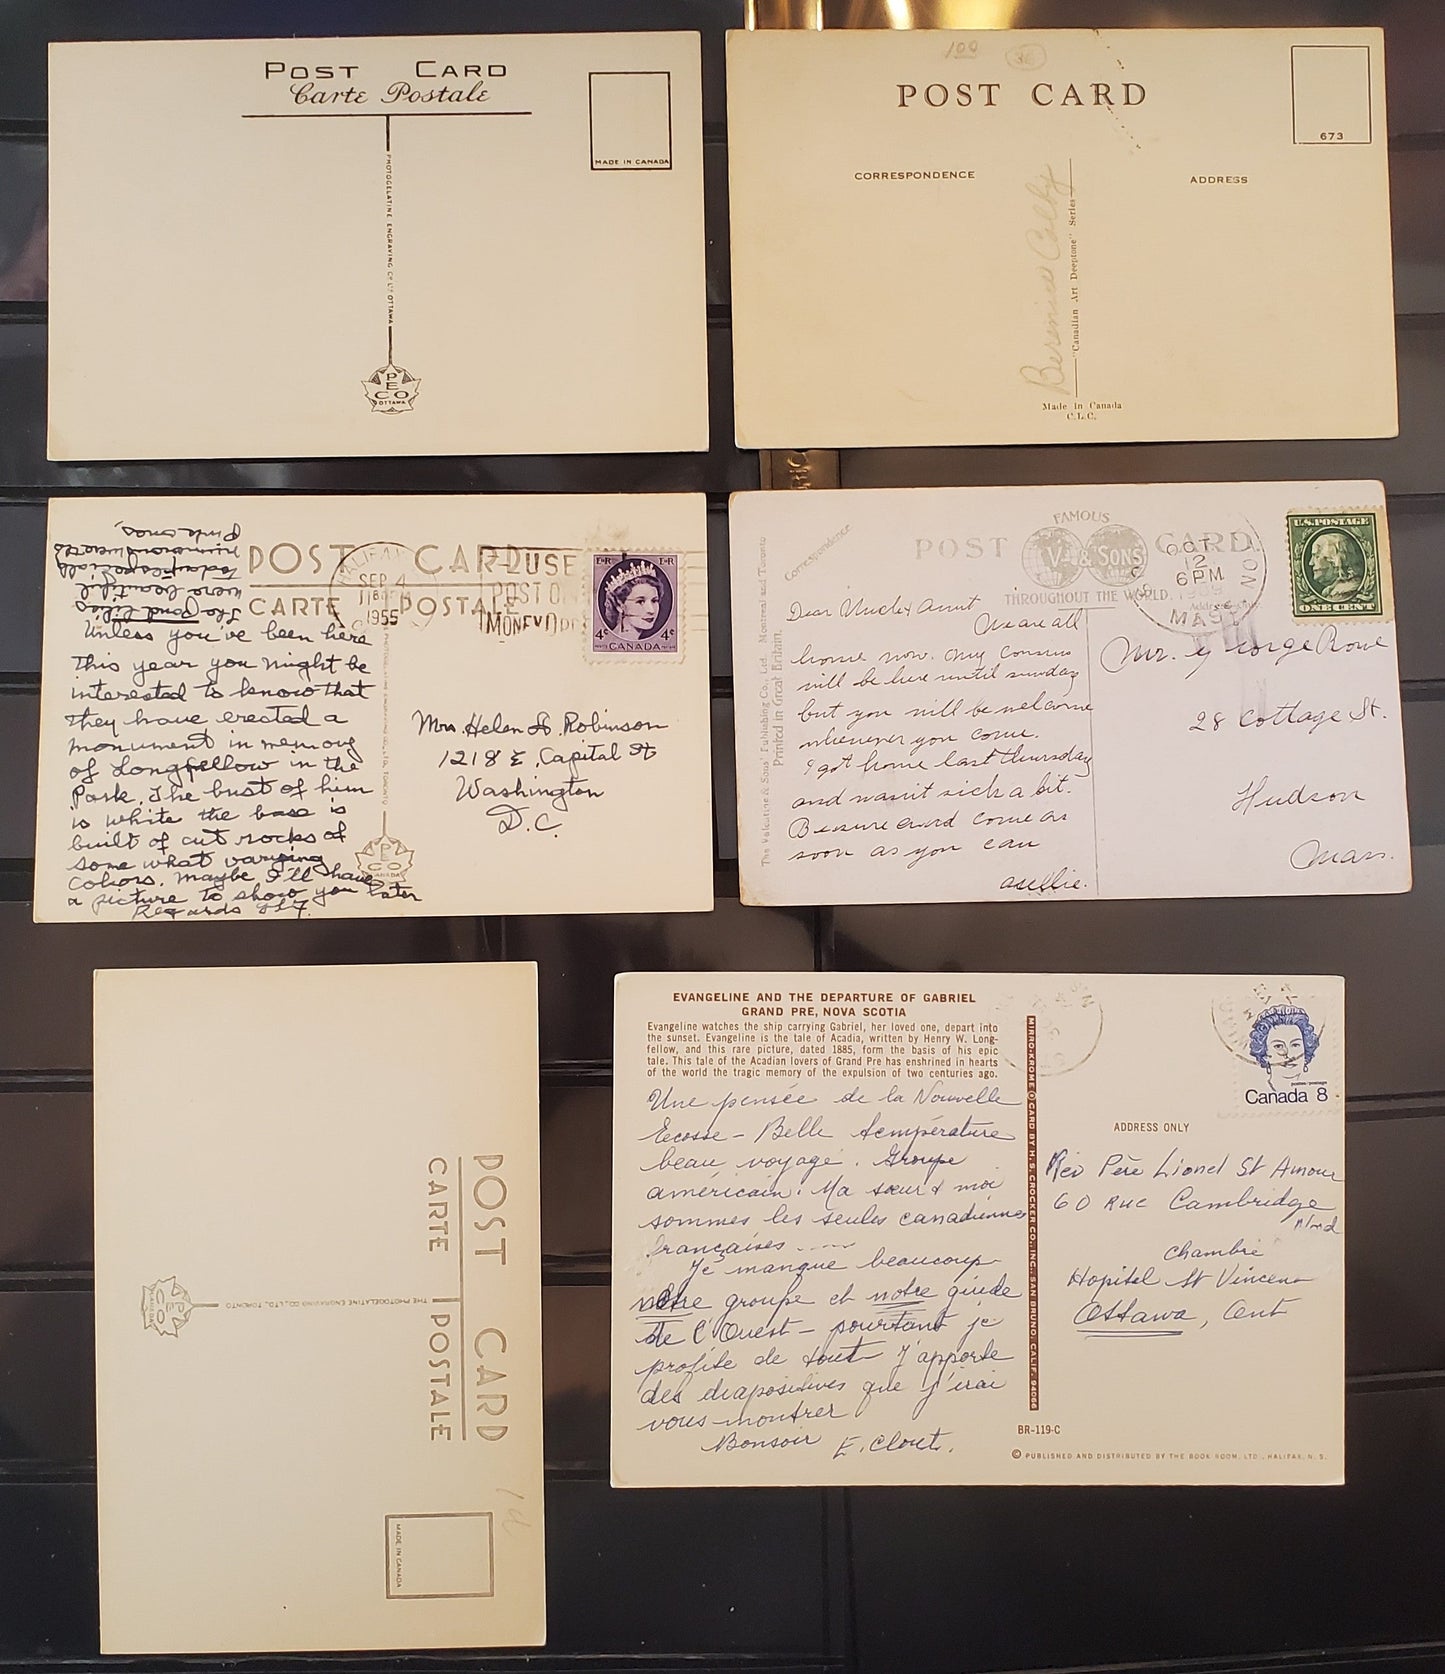 POST CARD
Carte Postale
MADE IN CANADA
PHOTOGELATINE ENGRAVING CO. LTD. OTTAWA
PECO
OTTAWA
100
36
POST CARD
673
CORRESPONDENCE
ADDRESS
Berenice Colby
"Canadian Art Deeptone" Series
Made in Canada
C.L.C.
POST CARD
CARTE POSTALE
HALIFAX
SEP 4
1955
USE
POST
MONEY
E·R E·R
4¢ 4¢
POSTES CANADA POSTAGE
The Pond Lilies
were beautiful
today especially
Pink ones,
Unless you've been here
this year you might be
interested to know that
they have erected a
monument in memory
of Longfellow in the
Park. The bust of him
is white the base is
built of cut rocks of
some what varying
colors. Maybe I'll have
a picture to show you later
Regards
PECO
Mrs Helen A. Robinson
1218 E. Capital St
Washington
D.C.
Correspondence
FAMOUS
POST CARD
V. & SONS
THROUGHOUT THE WORLD.
OCT
12
6 PM
MASS
U.S. POSTAGE
ONE CENT
The Valentine & Sons' Publishing Co., Ltd. Montreal and Toronto
Printed in Great Britain.
Dear Uncle & Aunt
We are all
home now. My cousins
will be here until sunday
but you will be welcome
whenever you come.
I got home last thursday
and wasn't sick a bit.
Be sure and come as
soon as you can
Mr. George Rowe
28 Cottage St.
Hudson
Mass.
POST CARD
CARTE POSTALE
THE PHOTOGELATINE ENGRAVING CO., LTD., TORONTO
PECO
MADE IN CANADA
EVANGELINE AND THE DEPARTURE OF GABRIEL
GRAND PRE, NOVA SCOTIA
Evangeline watches the ship carrying Gabriel, her loved one, depart into
the sunset. Evangeline is the tale of Acadia, written by Henry W. Long-
fellow, and this rare picture, dated 1885, form the basis of his epic
tale. This tale of the Acadian lovers of Grand Pre has enshrined in hearts
of the world the tragic memory of the expulsion of two centuries ago.
Une pensée de la Nouvelle
Ecosse – Belle température
beau voyage. Groupe
américain. Ma soeur & moi
sommes les seules canadiennes
françaises .....
Je manque beaucoup
notre groupe et notre guide
de l'Ouest – pourtant je
profite de tout J'apporte
des diapositives que j'irai
vous montrer
Bonsoir E. Clout.
MIRRO-KROME ® CARD BY H. S. CROCKER CO., INC., SAN BRUNO, CALIF. 94066
postes-postage
Canada 8
ADDRESS ONLY
Rév Père Lionel St Amour
60 Rue Cambridge
Nord
Chambre
Hopital St Vincent
Ottawa, Ont
BR-119-C
© PUBLISHED AND DISTRIBUTED BY THE BOOK ROOM, LTD., HALIFAX, N. S.